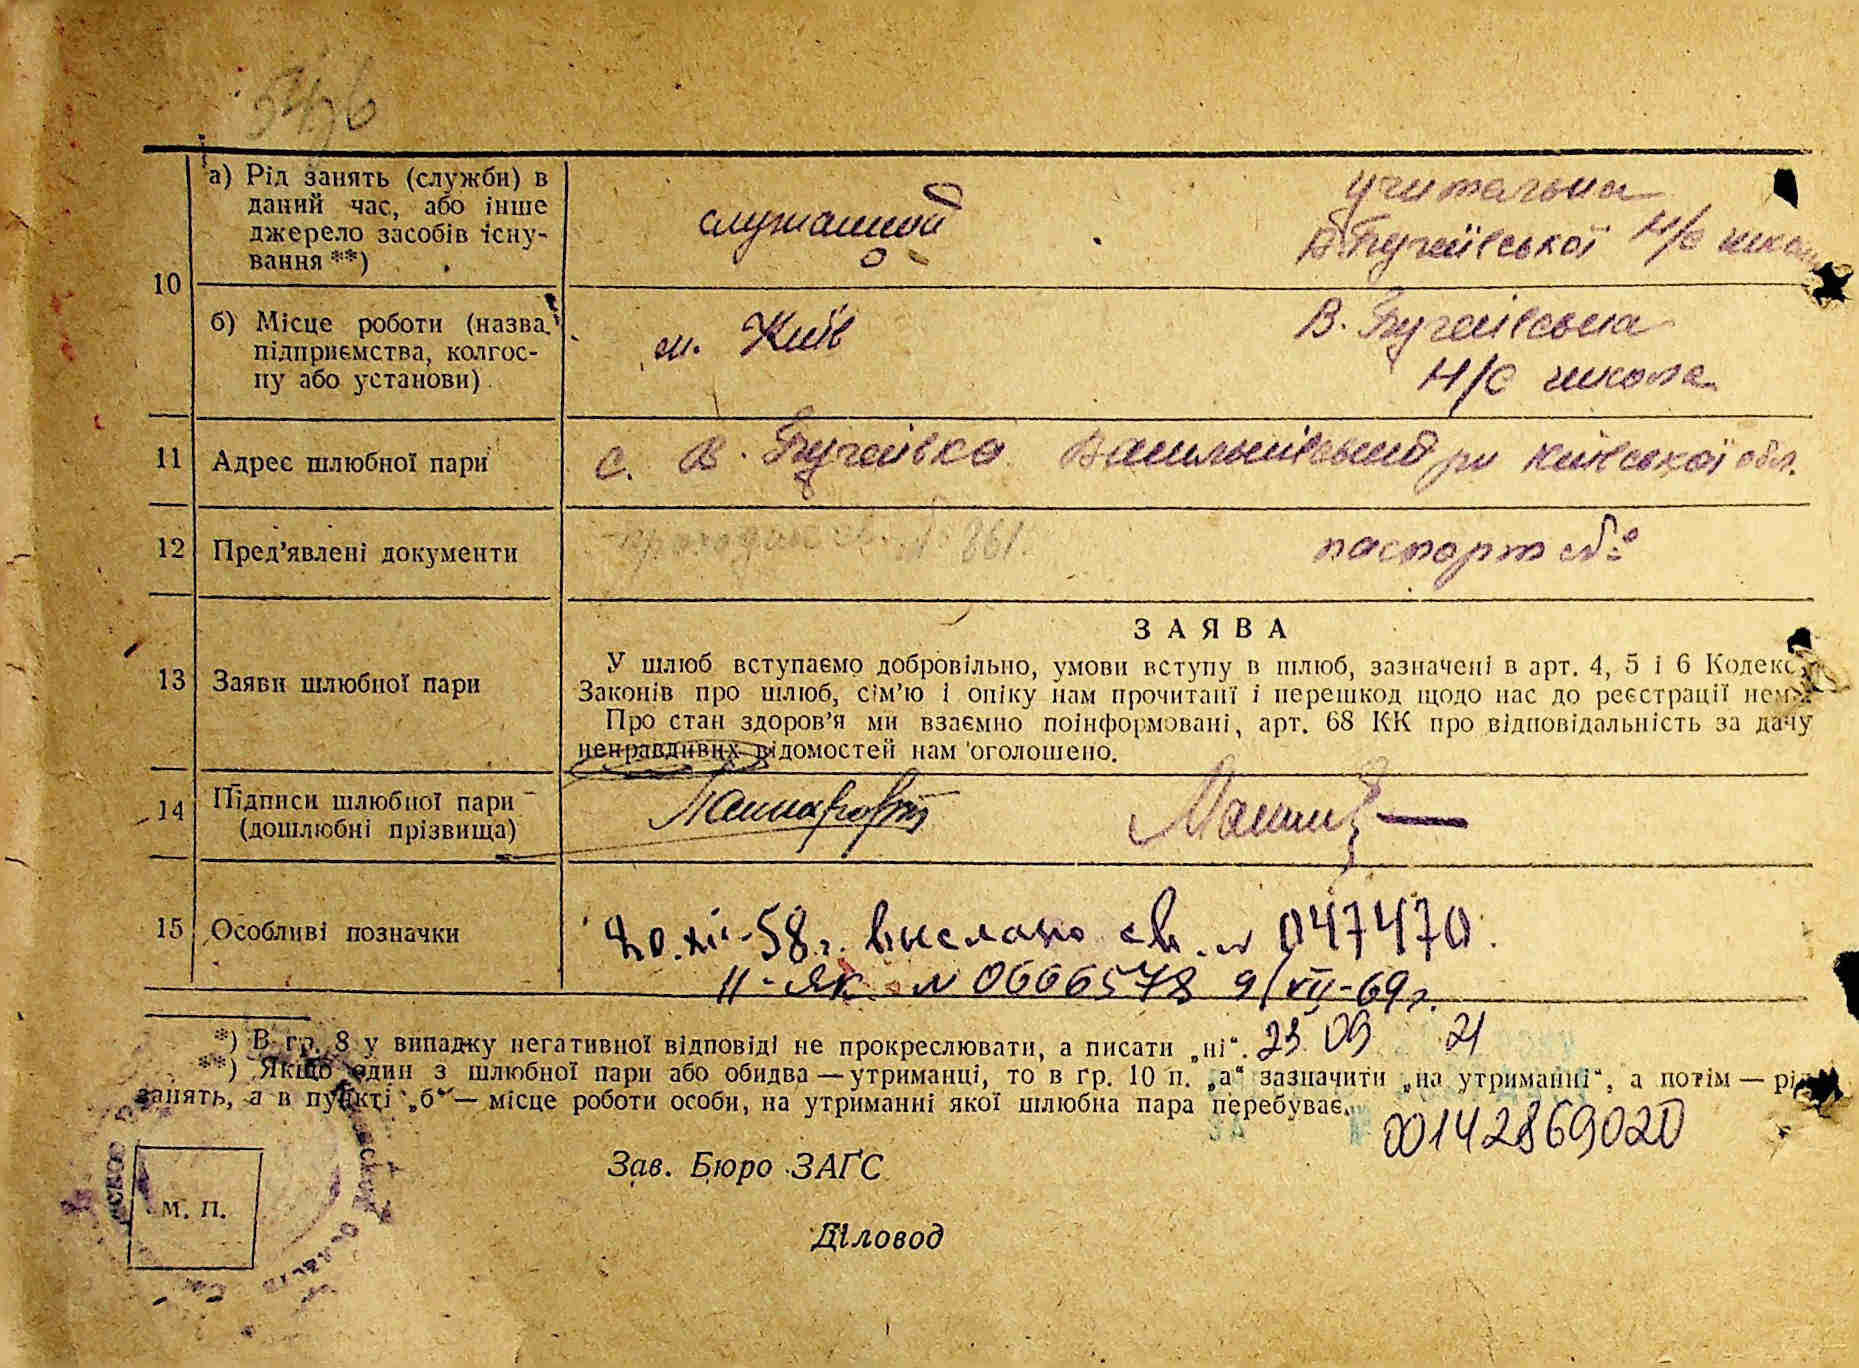 10
а) Рід занять (служби) в
даний час, або інше
джерело засобів існу-
вання **)
служащий
учителька
В. Бугаївської Н/С школи
б) Місце роботи (назва
підприємства, колгос-
пу або установи)
м. Київ
В. Бугаївська
Н/С школа
11 Адрес шлюбної пари
с. В. Бугаївка Васильківський р-н Київської обл.
12 Пред’явлені документи
№ 861.
паспорт №
13 Заяви шлюбної пари
ЗАЯВА
У шлюб вступаємо добровільно, умови вступу в шлюб, зазначені в арт. 4, 5 і 6 Кодексу
Законів про шлюб, сім’ю і опіку нам прочитані і перешкод щодо нас до реєстрації нема.
Про стан здоров’я ми взаємно поінформовані, арт. 68 КК про відповідальність за дачу
неправдивих відомостей нам оголошено.
14 Підписи шлюбної пари
(дошлюбні прізвища)
15 Особливі позначки
20.XII-58г. выслано св. № 047470.
II-ЯК № 0666578 9/VII-69г.
*) В гр. 8 у випадку негативної відповіді не прокреслювати, а писати „ні“.
23 09 21
**) Якщо один з шлюбної пари або обидва — утриманці, то в гр. 10 п. „а“ зазначити „на утриманні“, а потім — рід
занять, а в пункті „б“ — місце роботи особи, на утриманні якої шлюбна пара перебуває.
00142869020
Зав. Бюро ЗАГС
М. П.
Діловод